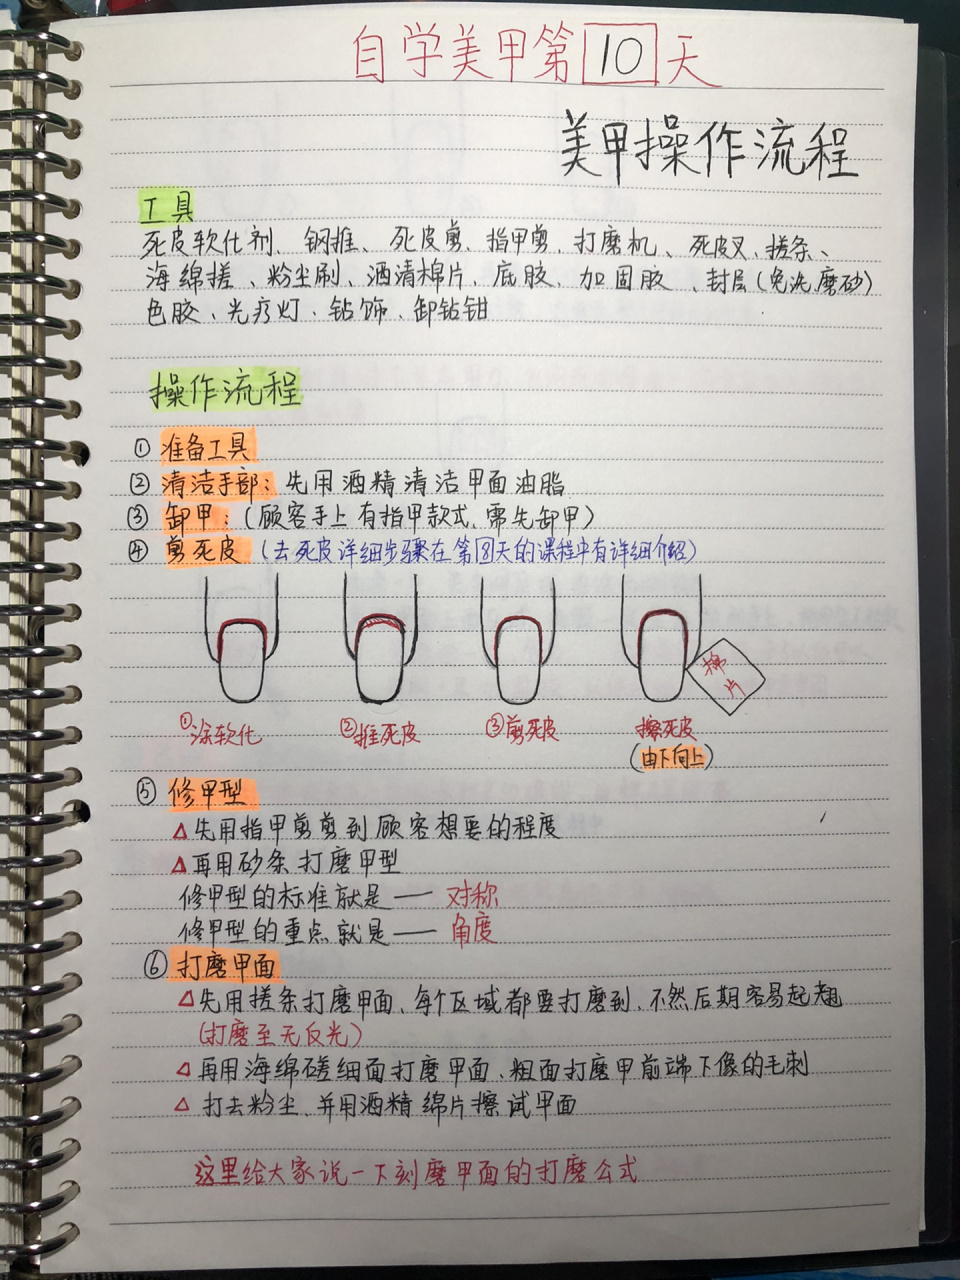 自学美甲第10天
美甲操作流程
工具
死皮软化剂、钢推、死皮剪、指甲剪、打磨机、死皮叉、搓条、
海绵搓、粉尘刷、酒清棉片、底胶、加固胶、封层(免洗.磨砂)
色胶、光疗灯、钻饰、卸钻钳
操作流程
① 准备工具
② 清洁手部：先用酒精清洁甲面油脂
③ 卸甲：(顾客手上有指甲款式.需先卸甲)
④ 剪死皮 (去死皮详细步骤在第8天的课程中有详细介绍)
棉片
①涂软化 ②推死皮 ③剪死皮 擦死皮
(由下向上)
⑤ 修甲型
△先用指甲剪剪到顾客想要的程度
△再用砂条打磨甲型
修甲型的标准就是—— 对称
修甲型的重点就是—— 角度
⑥ 打磨甲面
△先用搓条打磨甲面、每个区域都要打磨到、不然后期容易起翘
(打磨至无反光)
△再用海绵磋细面打磨甲面、粗面打磨甲前端下像的毛刺
△ 打去粉尘、并用酒精绵片擦试甲面
这里给大家说一下刻磨甲面的打磨公式